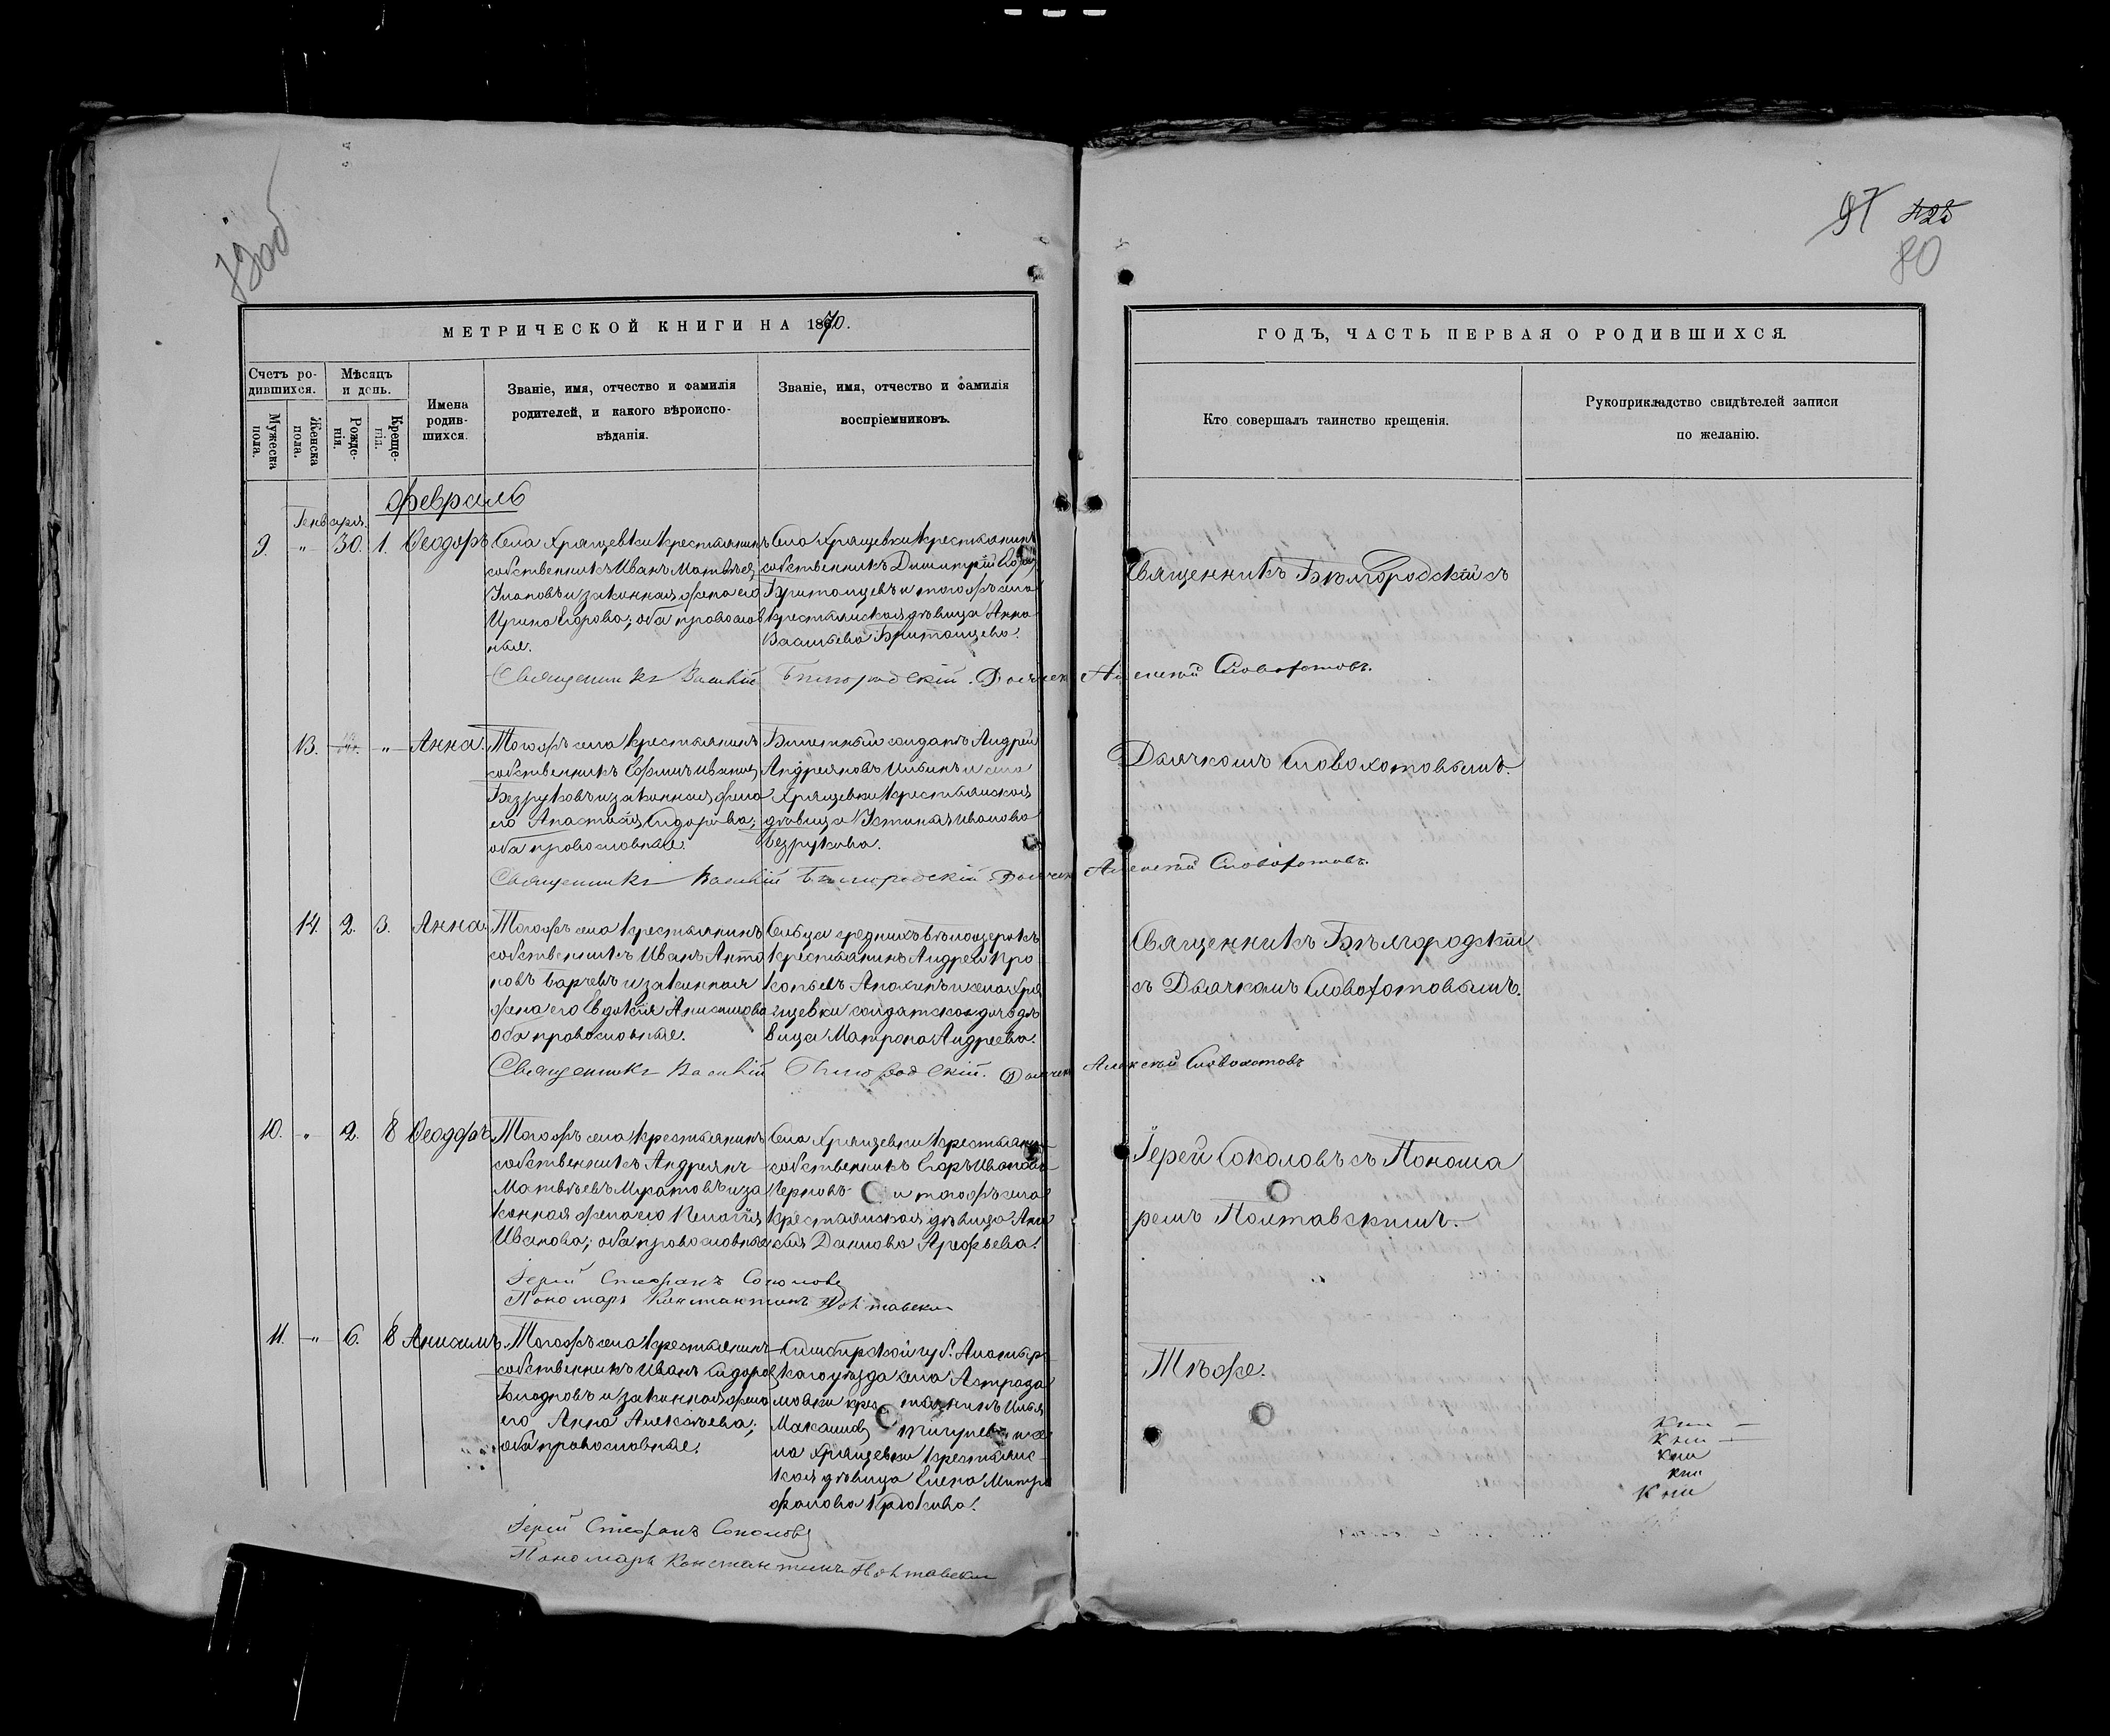 97 422
80
МЕТРИЧЕСКОЙ КНИГИ НА 1870.
Счетъ ро-
дившихся.
Мужеска
пола.
Женска
пола.
Мѣсяцъ
и день.
Рожде-
нія.
Креще-
нія.
Имена
родив-
шихся.
Званіе, имя, отчество и фамилія
родителей, и какого вѣроиспо-
вѣданія.
Званіе, имя, отчество и фамилія
воспріемниковъ.
ГОДЪ, ЧАСТЬ ПЕРВАЯ О РОДИВШИХСЯ.
Кто совершалъ таинство крещенія.
Рукоприкладство свидѣтелей записи
по желанію.
Февраль
Генваря.
9. " 30. 1. Ѳеодоръ
Села Хрящевки крестьянинъ
собственникъ Иванъ Матвѣев
и законная жена его
Ирина Егорова; оба православ
ные.
Села Хрящевки крестьянинъ
собственникъ Димитрій Егор
Британцевъ и тогожъ села
крестьянская дѣвица Анна
Васильева Британцева.
Священникъ Бѣлгородскій съ
Священникъ Василій Бѣлгородскій. Дьячекъ Алексѣй Словохотовъ.
13. " Анна.
Тогожъ села крестьянинъ
собственникъ Ефимъ Иванов
Безруковъ и законная жена
его Анастасія Сидорова;
оба православные.
Билетный солдатъ Андрей
Андреяновъ Ильинъ и села
Хрящевки крестьянская
дѣвица Устинья Иванова
Безрукова.
Дьячкомъ Словохотовымъ.
Священникъ Василій Бѣлгородскій Дьячекъ Алексѣй Словохотовъ.
14. 2. 3. Анна.
Тогожъ села крестьянинъ
собственникъ Иванъ Анто
новъ и законная
жена его Евдокія Анисимова
оба православные.
Сельца среднихъ бѣлоозерокъ
крестьянинъ Андрей Про
копьевъ Апохинъ и села Хря
щевки солдатская дочь дѣ
вица Матрона Андреева.
Священникъ Бѣлгородскій
съ Дьячкомъ Словохотовымъ.
Священникъ Василій Бѣлгородскій. Дьячекъ Алексѣй Словохотовъ
10. " 2. 8 Ѳеодоръ
Тогожъ села крестьянинъ
собственникъ Андреянъ
Матвѣевъ Муратовъ и за
конная жена его Пелагія
Иванова; оба православные
Села Хрящевки крестьянинъ
собственникъ Егоръ Иванов
Черновъ и тогожъ села
крестьянская дѣвица Ани
сья Данилова Арефьева.
Іерей Соколовъ съ Понома
ремъ Полтавскимъ.
Іерей Стефанъ Соколовъ
Пономарь Константинъ Полтавскій
11. " 6. 8 Анисимъ
Тогожъ села крестьянинъ
собственникъ Иванъ Сидоров
и законная жена
его Анна Алексѣева;
оба православные.
Симбирской губ. Алатыр
скаго уѣзда села Астрада
мовки крестьянинъ Илья
Максимов и се
ла Хрящевки крестьянс
кая дѣвица Елена Митро
фанова Крюкова.
Тѣже.
Іерей Стефанъ Соколовъ
Пономарь Константинъ Полтавскій